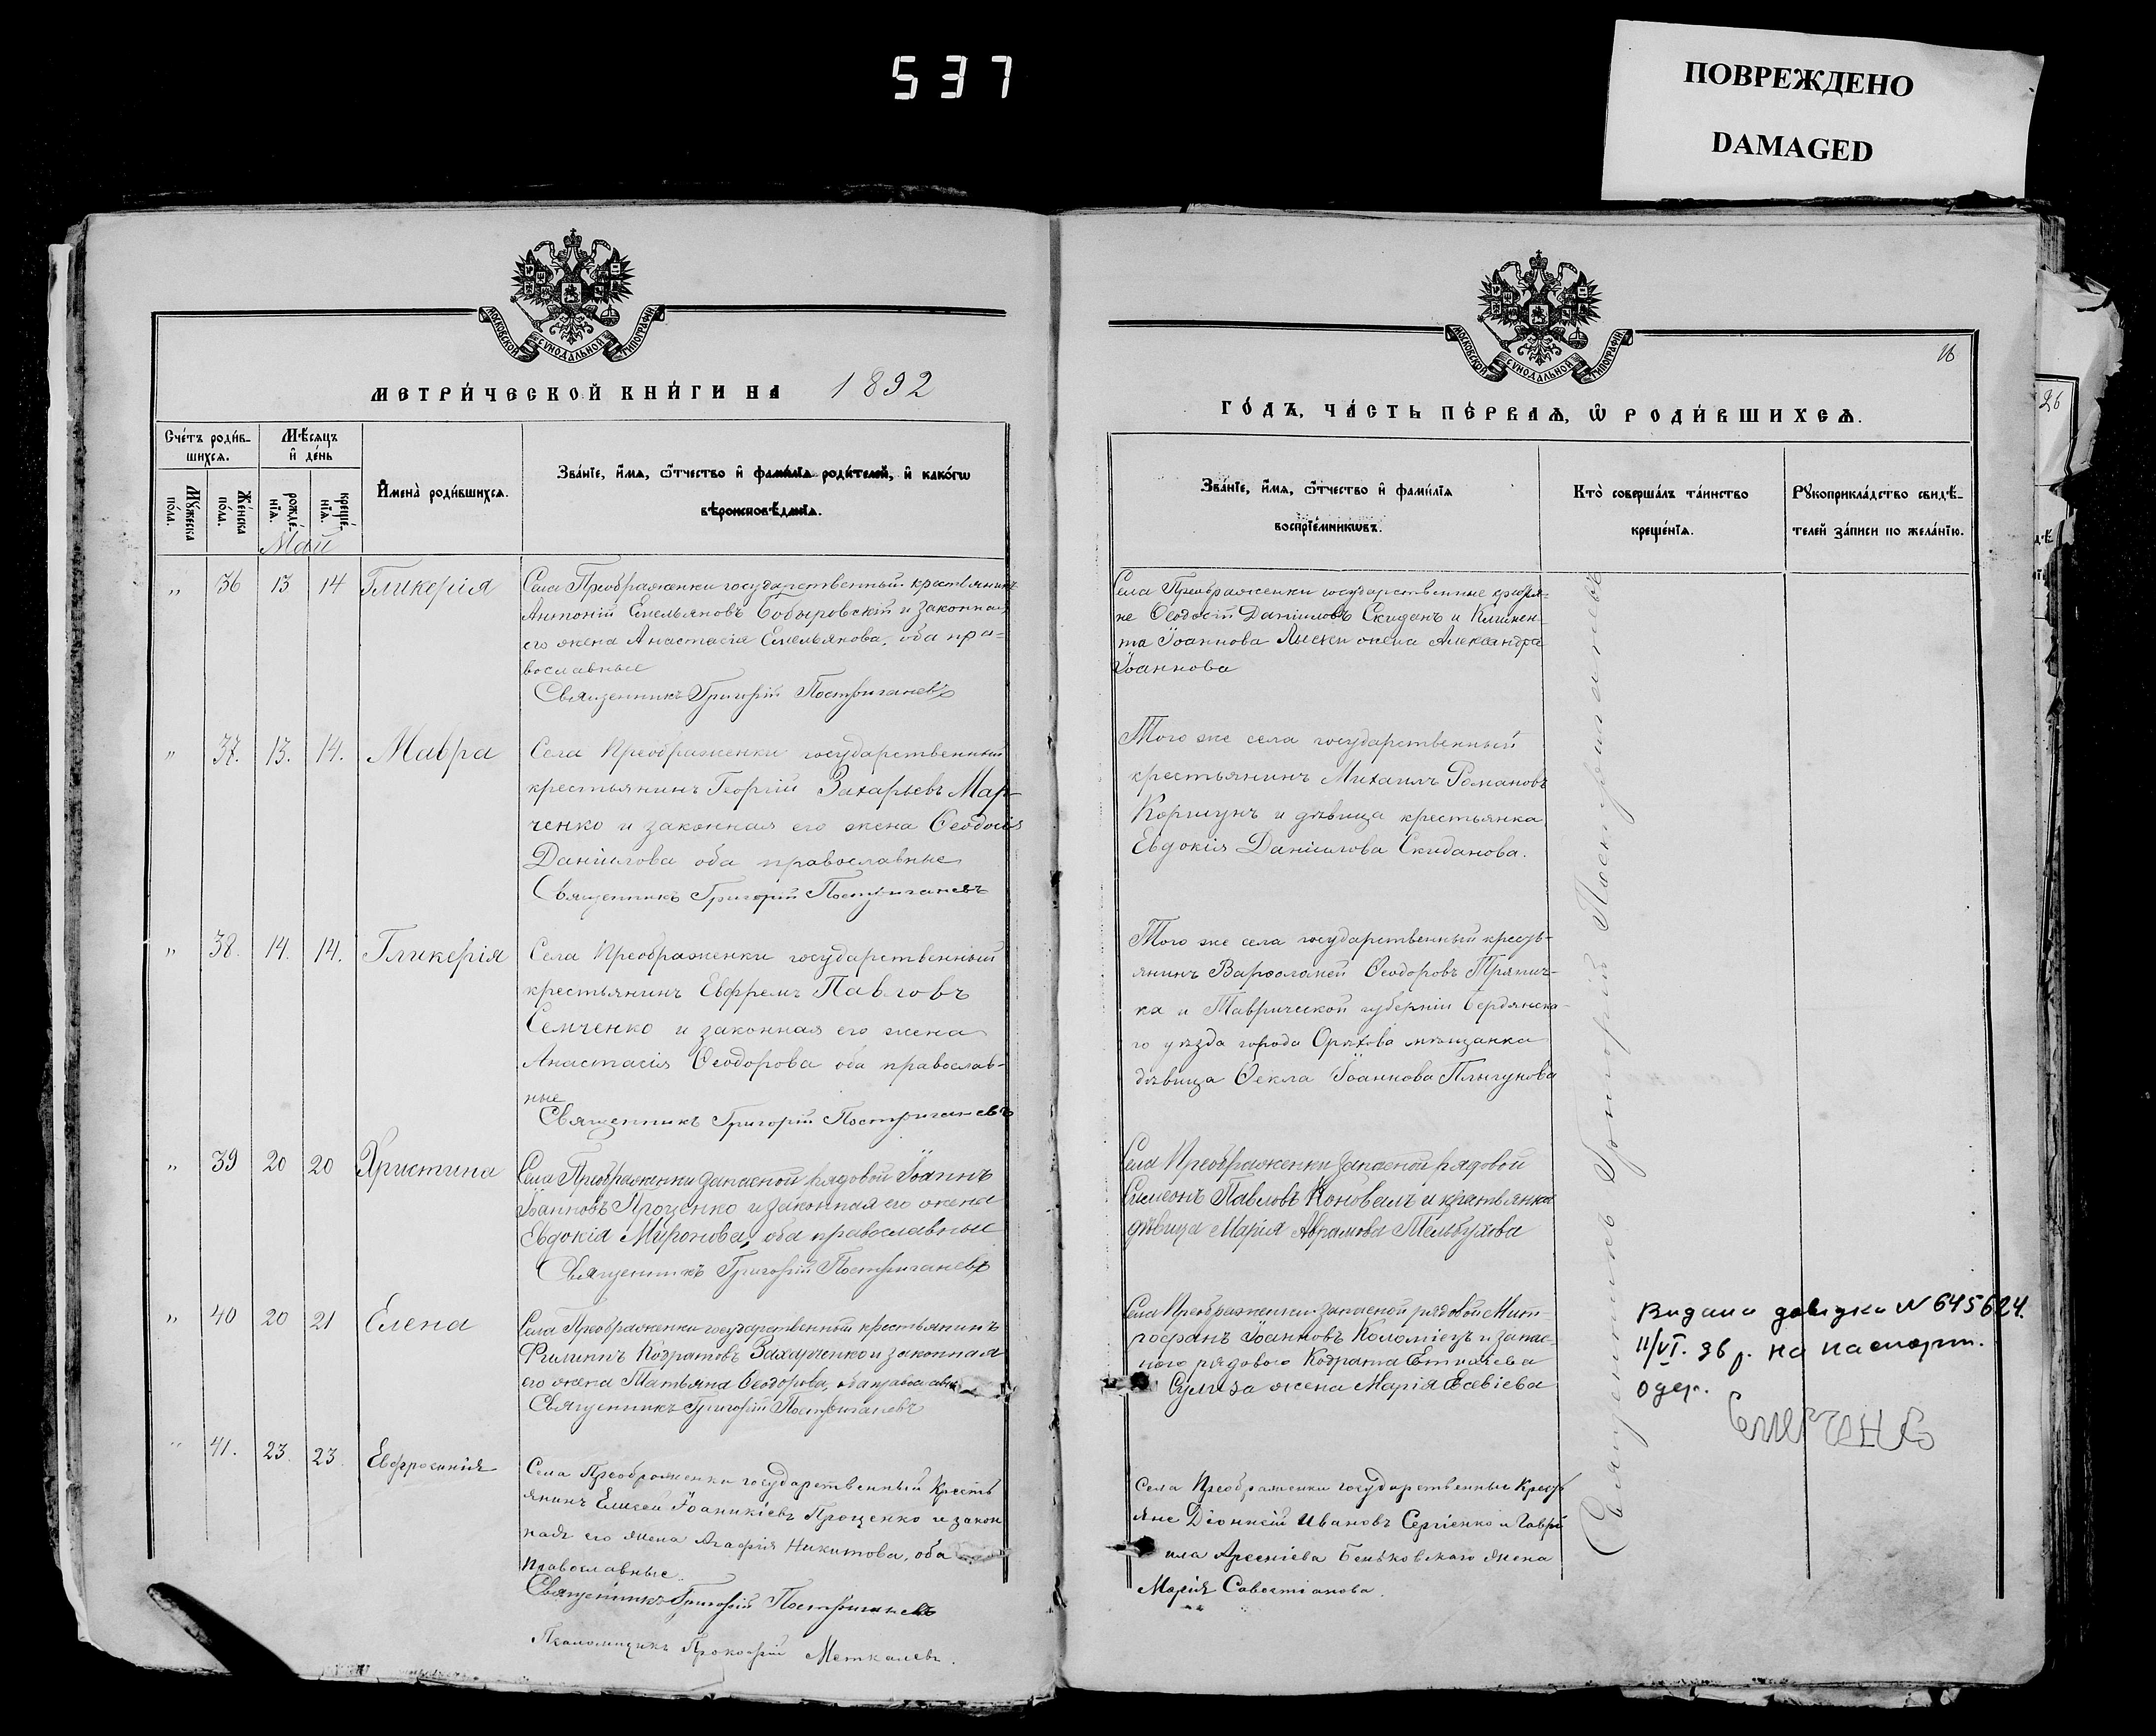 537
ПОВРЕЖДЕНО
DAMAGED
МОСКОВСКОЙ СѴНОДАЛЬНОЙ ТИПОГРАФІИ
МЕТРИ́ЧЕСКОЙ КНИ́ГИ НА 1892
Сче́тъ роди́в-
шихсѧ.
Мѣ́сѧцъ
и҆ де́нь
Мꙋ́жеска
по́ла.
Же́нска
по́ла.
рожде́-
нїѧ.
креще́-
нїѧ.
И҆мена̀ роди́вшихсѧ.
Зва́нїе, и҆́мѧ, ѻ҆́тчество и҆ фами́лїѧ роди́телей, и҆ како́гѡ
вѣроисповѣ́данїѧ.
Май
" 36 13 14 Гликерія
Села Преображенки государственный крестьянинъ
Антоній Емельяновъ Бобыровскій и законная
его жена Анастасія Емельянова, оба пра-
вославные
Священникъ Григорій Постригачевъ
" 37. 13. 14. Мавра
Села Преображенки государственный
крестьянинъ Георгій Захарьевъ Мар-
ченко и законная его жена Ѳеодосія
Даніилова оба православные
Священникъ Григорій Постригачевъ
" 38. 14. 14. Гликерія
Села Преображенки государственный
крестьянинъ Евфремъ Павловъ
Семченко и законная его жена
Анастасія Ѳеодорова оба православ-
ные
Священникъ Григорій Постригачевъ
" 39 20 20 Христина
Села Преображенки запасной рядовой Іоаннъ
Іоанновъ Проценко и законная его жена
Евдокія Миронова, оба православные
Священникъ Григорій Постригачевъ
" 40 20 21 Елена
Села Преображенки государственный крестьянинъ
Филиппъ Кодратовъ Захарченко и законная
его жена Татьяна Ѳеодорова, оба православные
Священникъ Григорій Постригачевъ
" 41. 23. 23. Евфросинія
Села Преображенки государственный Кресть
янинъ Елисей Іоанникіевъ Проценко и закон
ная его жена Агафія Никитова, оба
православные.
Священникъ Григорій Постригачевъ
Псаломщикъ Прокофій Меткалевъ.
МОСКОВСКОЙ СѴНОДАЛЬНОЙ ТИПОГРАФІИ
ГО́ДЪ, ЧА́СТЬ ПЕ́РВАѦ, Ѡ҆ РОДИ́ВШИХСѦ.
Зва́нїе, и҆́мѧ, ѻ҆́тчество и҆ фами́лїѧ
воспрїе́мникѡвъ.
Кто̀ соверша́лъ та́инство
креще́нїѧ.
Рꙋкоприкла́дство свидѣ́-
телей за́писи по жела́нїю.
Села Преображенки государственные крестья-
не Ѳеодосій Даніиловъ Скиданъ и Климен-
та Іоаннова жена Александра
Іоаннова
Того же села государственный
крестьянинъ Михаилъ Романовъ
Коршунъ и дѣвица крестьянка
Евдокія Даніилова Скиданова.
Того же села государственный кресть-
янинъ Варфоломей Ѳеодоровъ Трятич-
ка и Таврической губерніи Бердянска-
го уѣзда города Орѣхова мѣщанка
дѣвица Ѳекла Іоаннова Плыгунова
Села Преображенки запасной рядовой
Симеонъ Павловъ Коновалъ и крестьянка
дѣвица Марія Аврамова
Села Преображенки запасной рядовой Мит-
рофанъ Іоанновъ Коломіецъ и запас-
ного рядового Кодрата
жена Марія Евсевіева
Села Преображенки государственные Кресть
яне Діонисій Ивановъ Сергіенко и Гаврі
ила Арсеніева Беньковскаго жена
Марія Савостіанова.
Священникъ Григорій Постригачевъ
Видана довідка N 645624.
11/VI. 36 р. на паспорт.
одер.
26